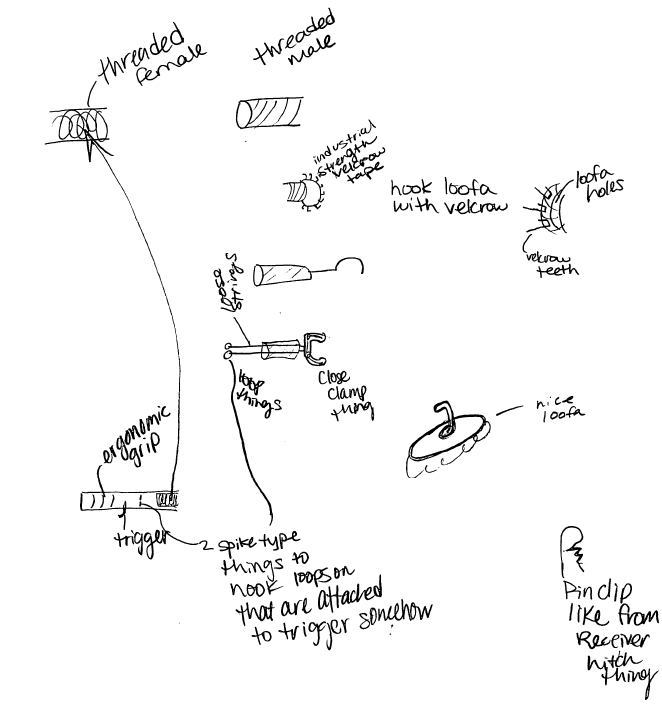 threaded
female
threaded
male
industrial
strength
velcrow
tape
hook loofa
with velcrow
loofa
holes
velcrow
teeth
loose
strings
loop
things
Close
clamp
thing
nice
loofa
ergonomic
grip
trigger
2 spike type
things to
hook loops on
that are attached
to trigger somehow
Pin clip
like from
Receiver
hitch
thing